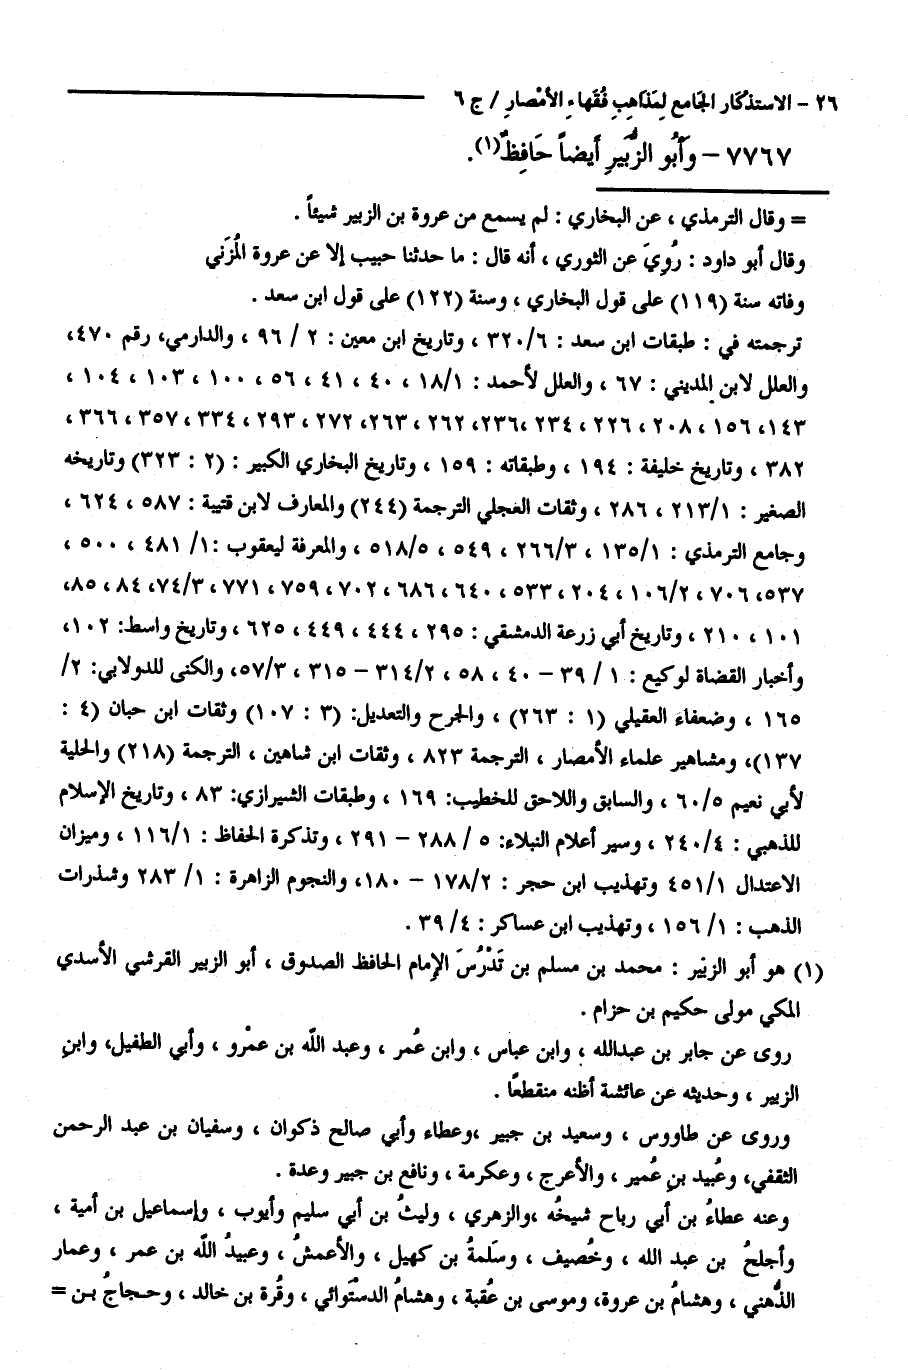 ٢٦ - الاستذكار الجَامع لِمَذَاهِبِ فُقَهاءِ الأمْصارِ / ج ٦
٧٧٦٧ - وَأَبُو الزُّبَيرِ أَيضاً حَافِظٌ(١).
= وقال الترمذي ، عن البخاري : لم يسمع من عروة بن الزبير شيئاً .
وقال أبو داود : رُوِيَ عن الثوري ، أنه قال : ما حدثنا حبيب إلا عن عروة المُزَني
وفاته سنة (١١٩) على قول البخاري ، وسنة (١٢٢) على قول ابن سعد .
ترجمته في : طبقات ابن سعد : ٣٢٠/٦ ، وتاريخ ابن معين : ٢ / ٩٦ ، والدارمي، رقم ٤٧٠،
والعلل لابن المديني : ٦٧ ، والعلل لأحمد : ١٨/١ ، ٤٠ ، ٤١ ، ٥٦ ، ١٠٠ ، ١٠٣ ، ١٠٤ ،
١٤٣، ١٥٦ ، ٢٠٨ ، ٢٢٦ ، ٢٣٤ ،٢٣٦، ٢٦٢ ، ٢٦٣، ٢٧٢ ، ٢٩٣ ، ٣٣٤ ، ٣٥٧ ، ٣٦٦،
٣٨٢ ، وتاريخ خليفة : ١٩٤ ، وطبقاته : ١٥٩ ، وتاريخ البخاري الكبير : (٢ : ٣٢٣) وتاريخه
الصغير : ٢١٣/١ ، ٢٨٦ ، وثقات العجلي الترجمة (٢٤٤) والمعارف لابن قتيبة : ٥٨٧ ، ٦٢٤ ،
وجامع الترمذي : ١٣٥/١ ، ٢٦٦/٣ ، ٥٤٩ ، ٥١٨/٥ ، والمعرفة ليعقوب :١/ ٤٨١ ، ٥٠٠ ،
٥٣٧، ٧٠٦ ، ١٠٦/٢ ، ٢٠٤ ، ٥٣٣ ، ٦٤٠ ، ٦٨٦ ، ٧٠٢ ، ٧٥٩ ، ٧٧١ ، ٧٤/٣، ٨٤ ، ٨٥،
١٠١ ، ٢١٠ ، وتاريخ أبي زرعة الدمشقي : ٢٩٥ ، ٤٤٤ ، ٤٤٩ ، ٦٢٥ ، وتاريخ واسط: ١٠٢،
وأخبار القضاة لوكيع : ١ / ٣٩ - ٤٠ ، ٥٨ ، ٣١٤/٢ - ٣١٥ ، ٥٧/٣، والكنى للدولابي: ٢/
١٦٥ ، وضعفاء العقيلي (١ : ٢٦٣) ، والجرح والتعديل: (٣ : ١٠٧) وثقات ابن حبان (٤ :
١٣٧)، ومشاهير علماء الأمصار ، الترجمة ٨٢٣ ، وثقات ابن شاهين ، الترجمة (٢١٨) والحلية
لأبي نعيم ٦٠/٥ ، والسابق واللاحق للخطيب: ١٦٩ ، وطبقات الشيرازي: ٨٣ ، وتاريخ الإسلام
للذهبي : ٢٤٠/٤ ، وسير أعلام النبلاء: ٥ / ٢٨٨ - ٢٩١ ، وتذكرة الحفاظ : ١١٦/١ ، وميزان
الاعتدال ٤٥١/١ وتهذيب ابن حجر : ١٧٨/٢ - ١٨٠، والنجوم الزاهرة : ١/ ٢٨٣ وشذرات
الذهب : ١/ ١٥٦ ، وتهذيب ابن عساكر : ٤/ ٣٩ .
(١) هو أبو الزبير : محمد بن مسلم بن تَدْرُسَ الإمام الحافظ الصدوق ، أبو الزبير القرشي الأسدي
المكي مولى حكيم بن حزام .
روى عن جابر بن عبدالله ، وابن عباس ، وابن عُمر ، وعبد اللّه بن عمْرو ، وأبي الطفيل، وابنِ
الزبير ، وحديثه عن عائشة أظنه منقطعًا .
وروى عن طاووس ، وسعيد بن جبير ،وعطاء وأبي صالح ذكوان ، وسفيان بن عبد الرحمن
الثقفي، وعُبيد بنِ عُمير ، والأعرج ، وعكرمة ، ونافع بن جبير وعدة .
وعنه عطاءُ بن أبي رباح شيخُه ،والزهري ، وليثُ بن أبي سليم وأيوب ، وإسماعيل بن أمية ،
وأجلحُ بن عبد الله ، وخُصيف ، وسَلَمةُ بن كهيل ، والأعمشُ ، وعبيدُ اللّه بن عمر ، وعمار
الدُّهني ، وهشامُ بن عروة، وموسى بن عُقبة ، وهشامُ الدستْوائي ، وقُرة بن خالد ، وحجاجُ بن =